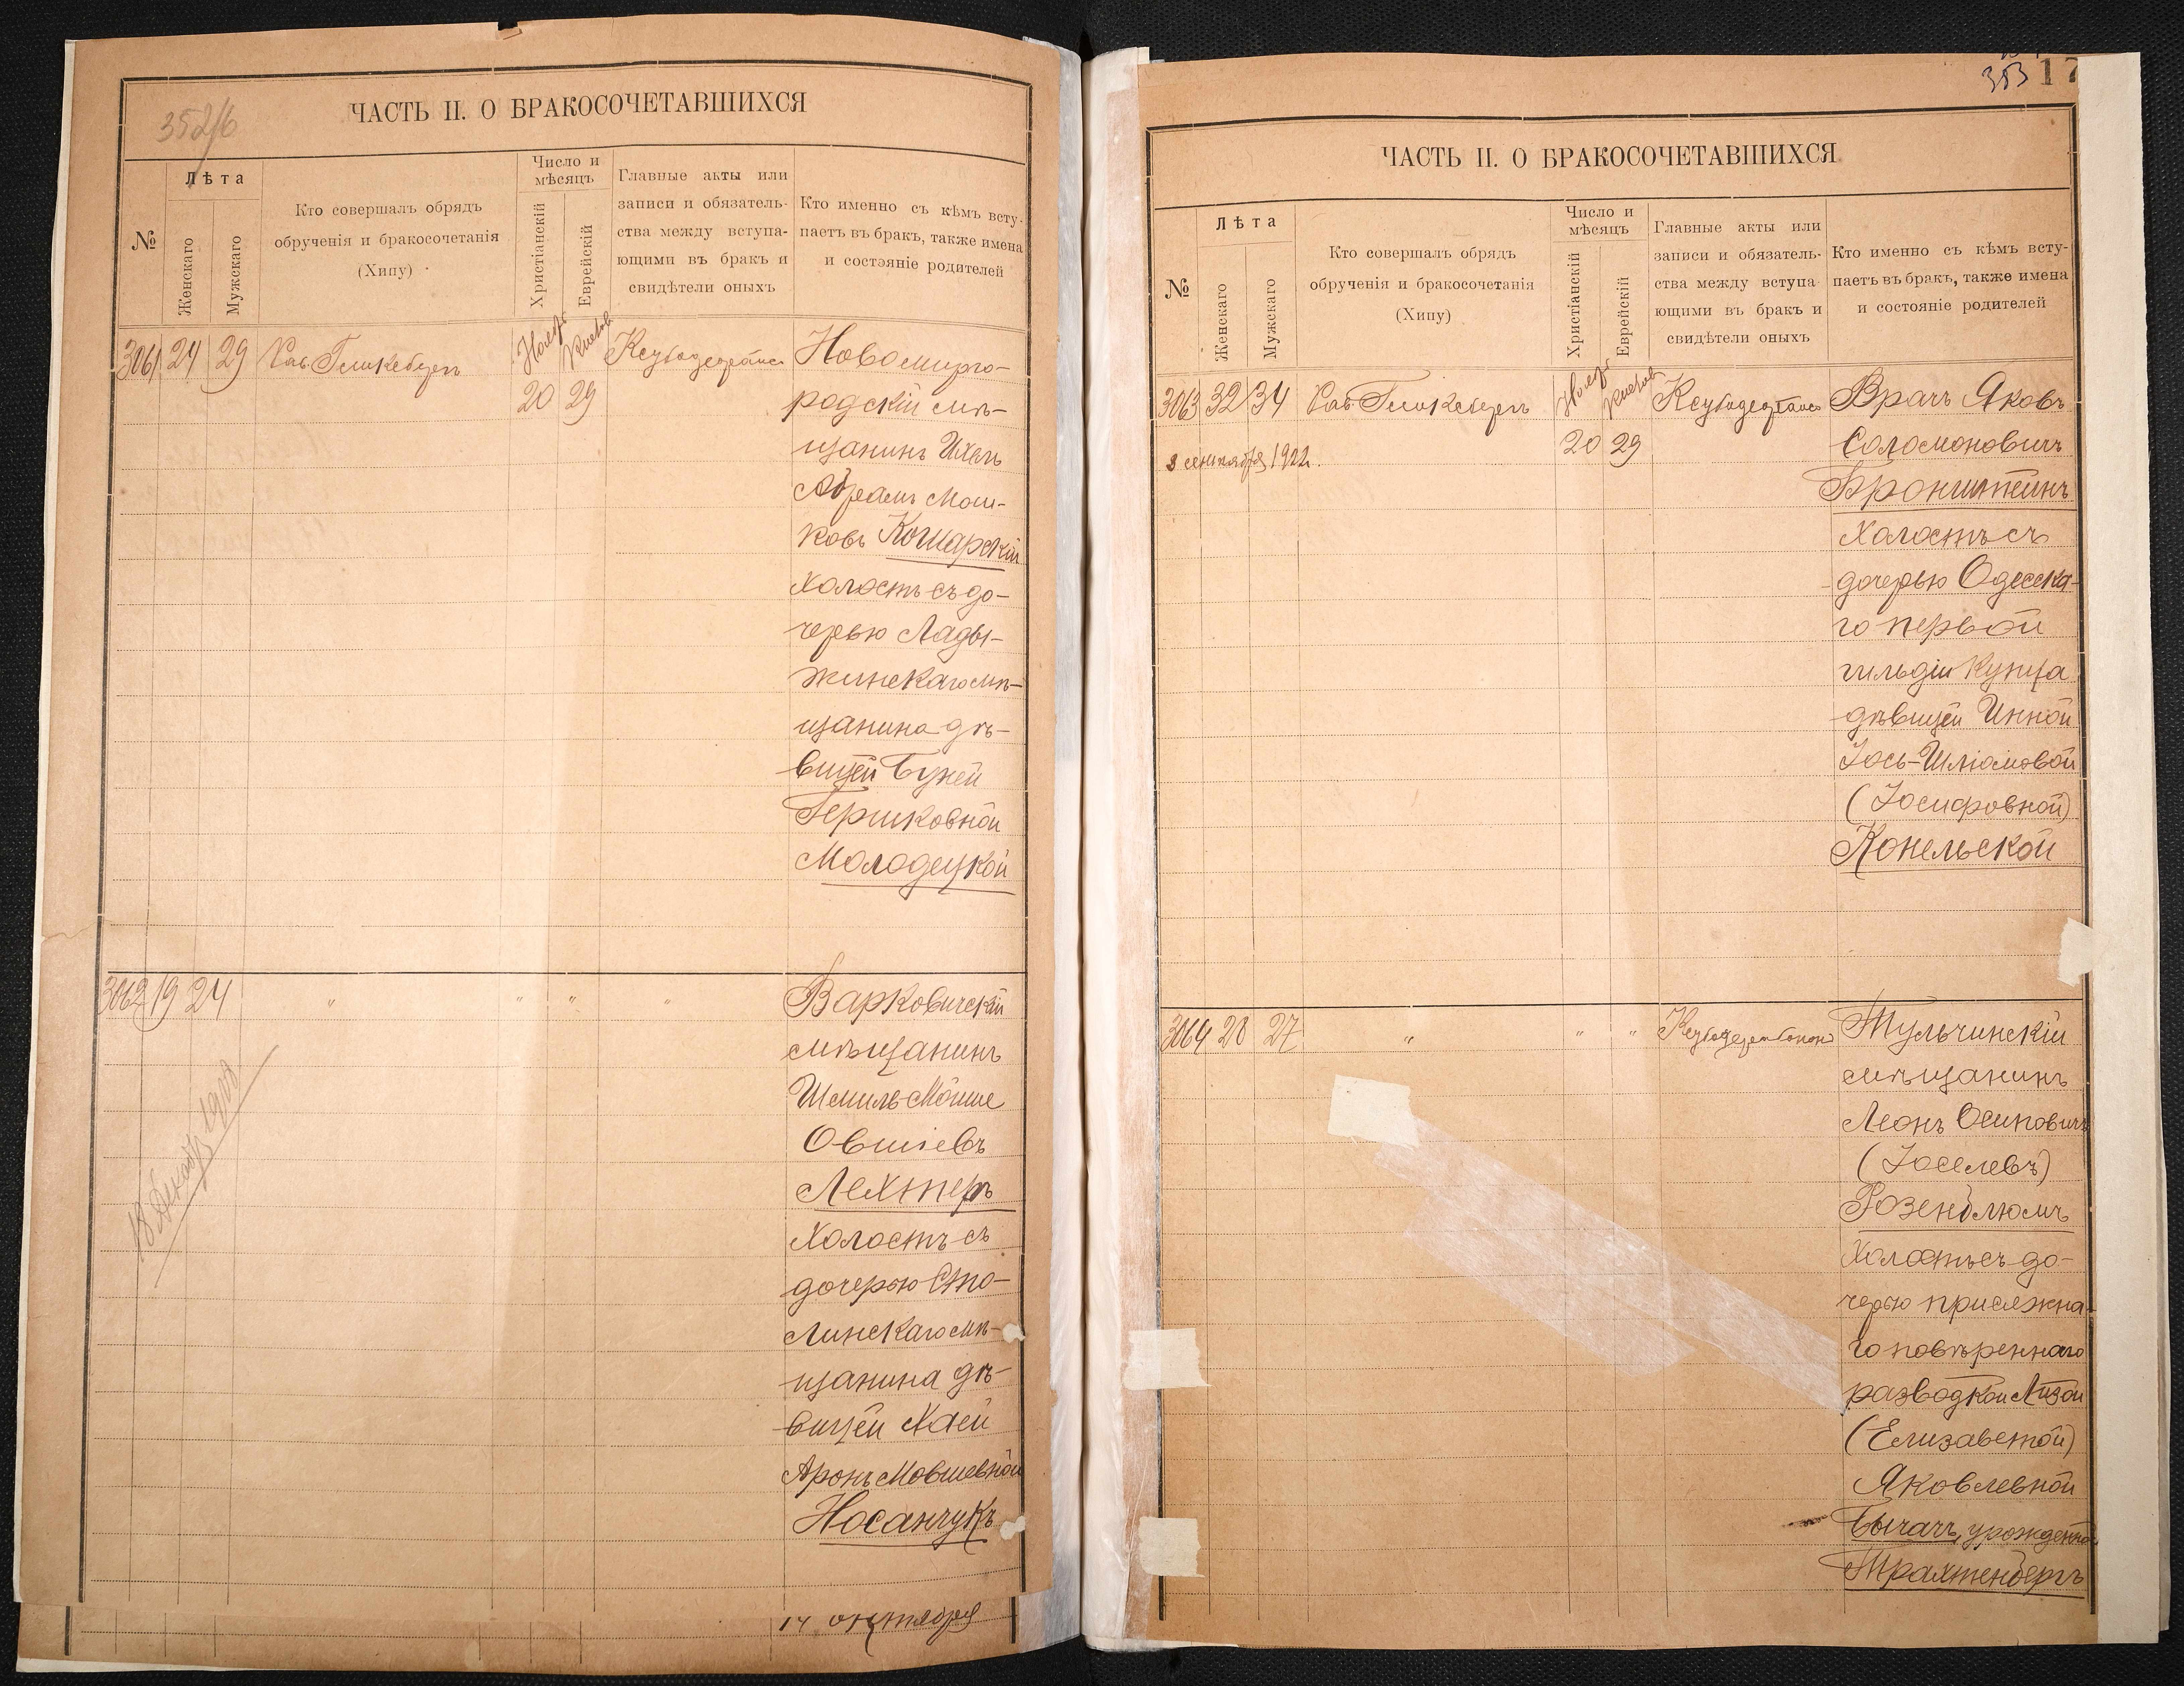 352/б
ЧАСТЬ II. О БРАКОСОЧЕТАВШИХСЯ
№
Лѣта
Женскаго
Мужскаго
Кто совершалъ обрядъ
обрученія и бракосочетанія
(Хипу)
Число и
мѣсяцъ
Христіанскій
Еврейскій
Главные акты или
записи и обязатель-
ства между вступа-
ющими въ бракъ и
свидѣтели оныхъ
Кто именно съ кѣмъ всту-
паетъ въ бракъ, также имена
и состояніе родителей
3061 24 29 Рав.
Ноябр
20 29
Новомирго-
родскій мѣ-
щанинъ Ихель
Абрамъ Мош-
ковъ Кошарскій
холостъ съ до-
черью Лады-
жинскаго мѣ-
щанина дѣ-
вицей Бузей
Гершковной
Молодецкой
3062 19 24 " " " "
18 Декабр 1908
Варковичскій
мѣщанинъ
Шмиль Мойше
Овшіевъ
Лехтеръ
холостъ съ
дочерью Сто-
линскаго мѣ-
щанина дѣ-
вицей Хаей
Аронъ Мовшевной
Носанчукъ
14 октября
353 17
ЧАСТЬ II. О БРАКОСОЧЕТАВШИХСЯ
№
Лѣта
Женскаго
Мужскаго
Кто совершалъ обрядъ
обрученія и бракосочетанія
(Хипу)
Число и
мѣсяцъ
Христіанскій
Еврейскій
Главные акты или
записи и обязатель-
ства между вступа-
ющими въ бракъ и
свидѣтели оныхъ
Кто именно съ кѣмъ всту-
паетъ въ бракъ, также имена
и состояніе родителей
3063 32 34 Рав.
Ноябр
20 29
сентября 1922.
Врачъ Яковъ
Соломоновичъ
Бронштейнъ
холостъ съ
дочерью Одесска-
го первой
гильдіи купца
дѣвицей Инной
Іось-Шліомовой
(Іосифовной)
Конельской
3064 28 27 " " "
Тульчинскій
мѣщанинъ
Леонъ Осиповичъ
(Іоселевъ)
Розенблюмъ
холостъ съ до-
черью присяжна-
го повѣреннаго
разводкой Лизой
(Елизаветой)
Яковлевной
Бычачъ, урожденной
Трахтенбергъ